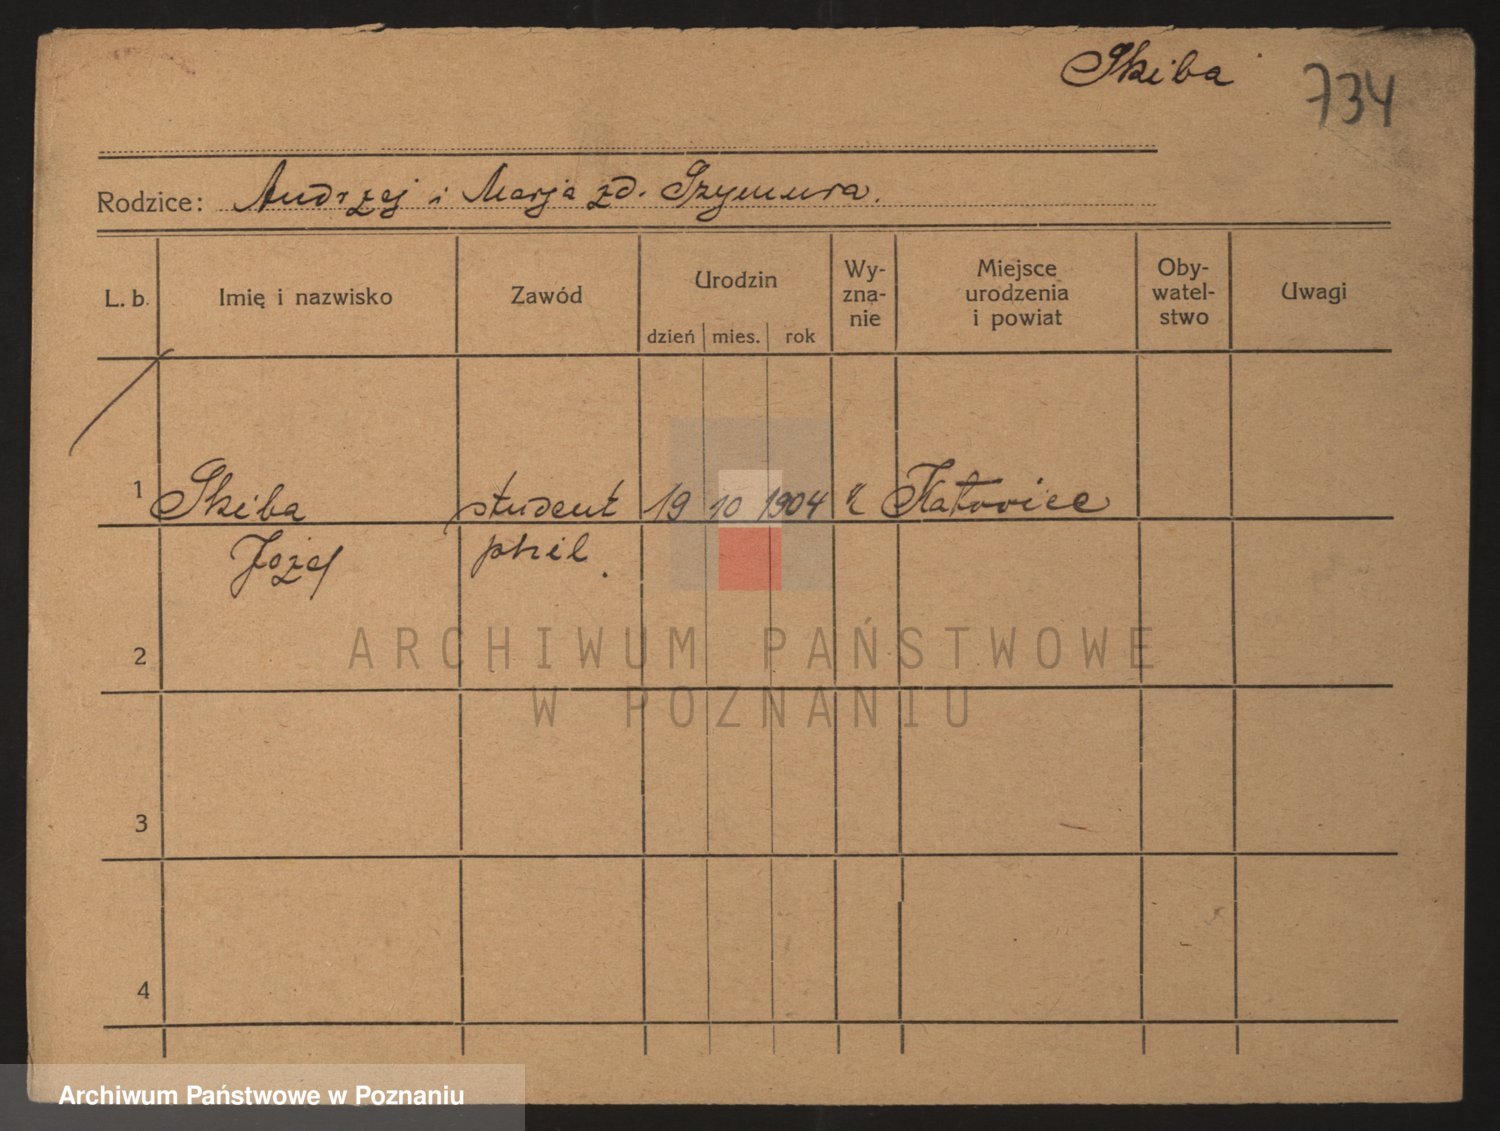 Skiba 734
Rodzice: Andrzej i Marja zd. Szymura.
L. b. Imię i nazwisko Zawód Urodzin dzień mies. rok Wy-zna-nie Miejsce urodzenia i powiat Oby-watel-stwo Uwagi
1 Skiba student 19 10 1904 Katowice
Józef phil.
2
ARCHIWUM PAŃSTWOWE
W POZNANIU
3
4
Archiwum Państwowe w Poznaniu